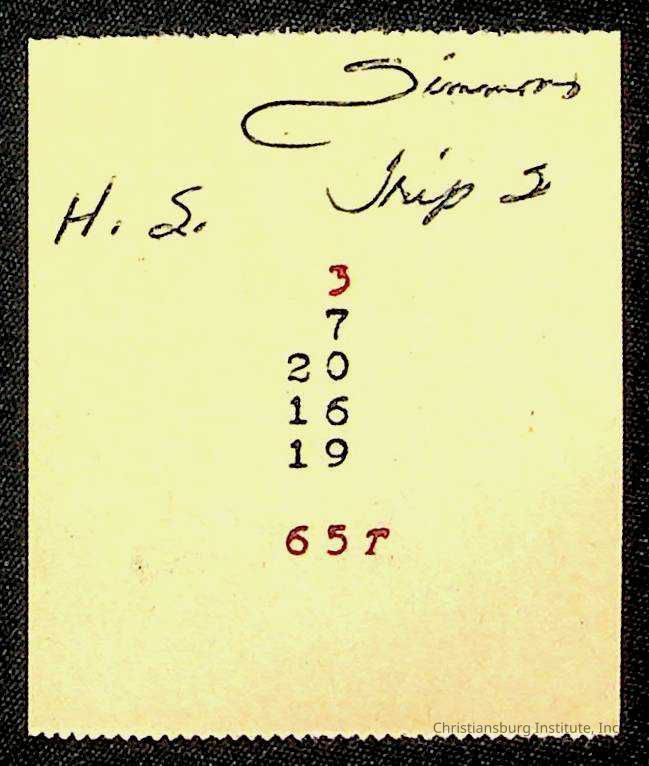 Simmons
Trip 2
H. S.
3
7
20
16
19
65T
Christiansburg Institute, Inc